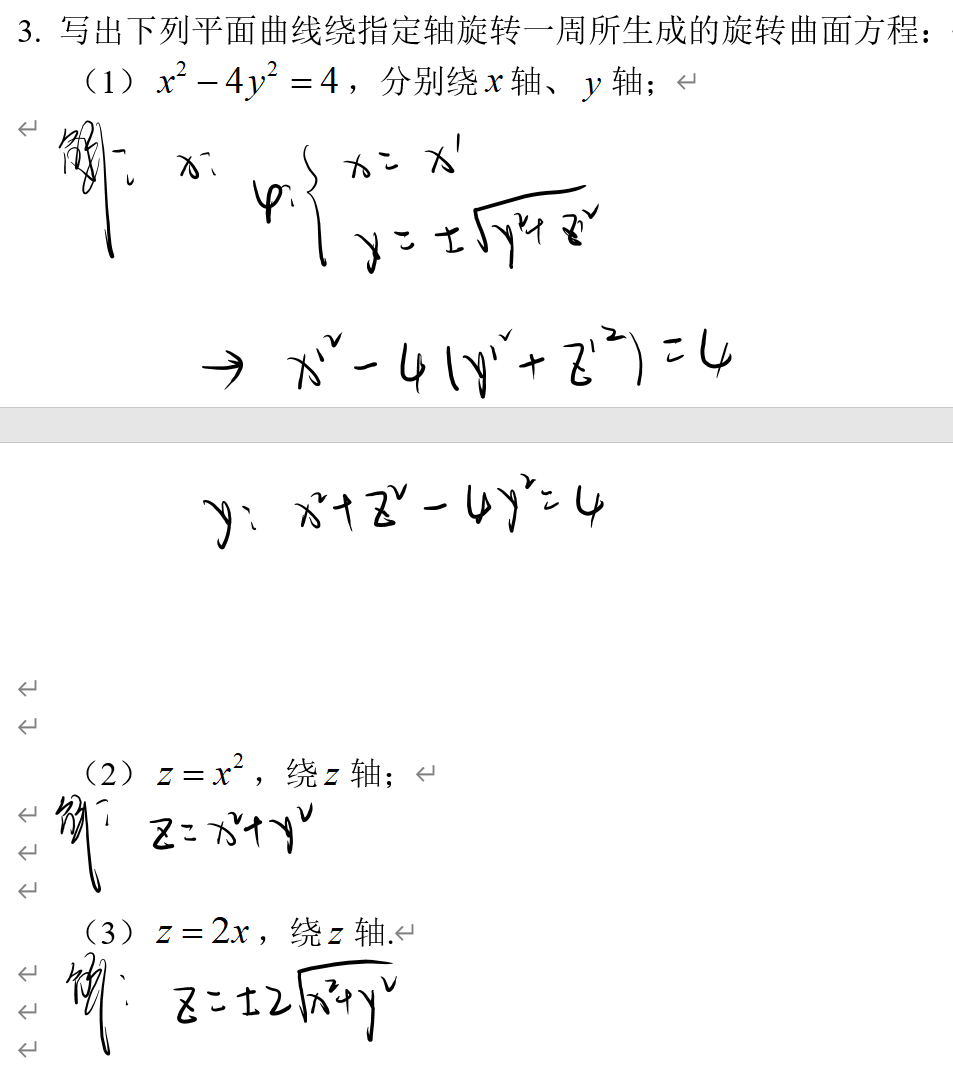 3. 写出下列平面曲线绕指定轴旋转一周所生成的旋转曲面方程：
（1）x² − 4y² = 4，分别绕 x 轴、 y 轴；
解： x： φ: { x = x'
y = ±√(y'²+z'²)
→ x'² − 4(y'² + z'²) = 4
y： x²+z² − 4y² = 4
（2）z = x²，绕 z 轴；
解： z = x²+y²
（3）z = 2x，绕 z 轴.
解： z = ±2√(x²+y²)